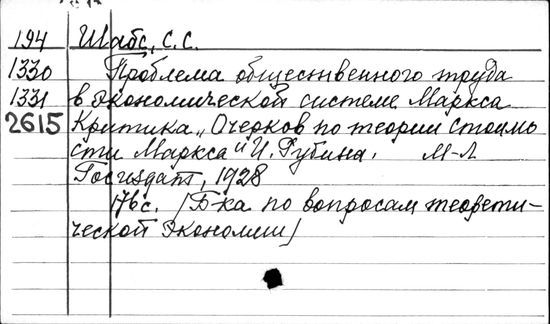 194 Шабс, С.С.
1330 Проблема общественного труда
1331 в экономической системе Маркса
2615 Критика „Очерков по теории стоимо
сти Маркса" И. Рубина. М-Л
Госиздат, 1928
176 с. /Б-ка по вопросам теорети-
ческой экономии/